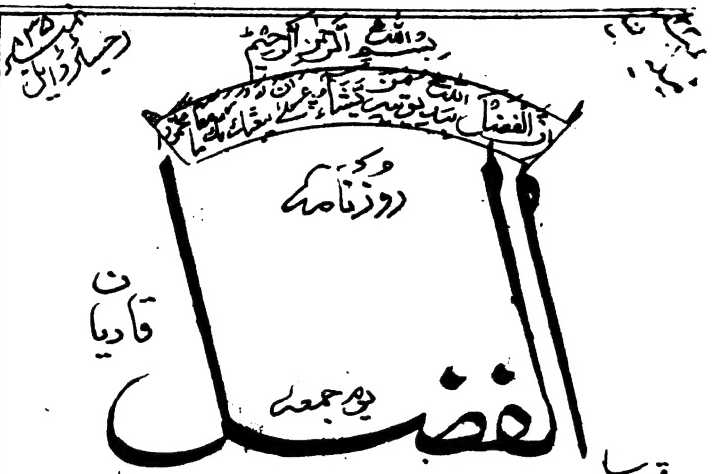 رجسٹرڈ ایل نمبر ۸۳۵
بسم اللہ الرحمن الرحیم
ان الفضل بید اللہ یوتیہ من یشاء عسے ان یبعثک ربک مقاما محمودا
روزنامہ
قادیان
الفضل
یوم جمعہ